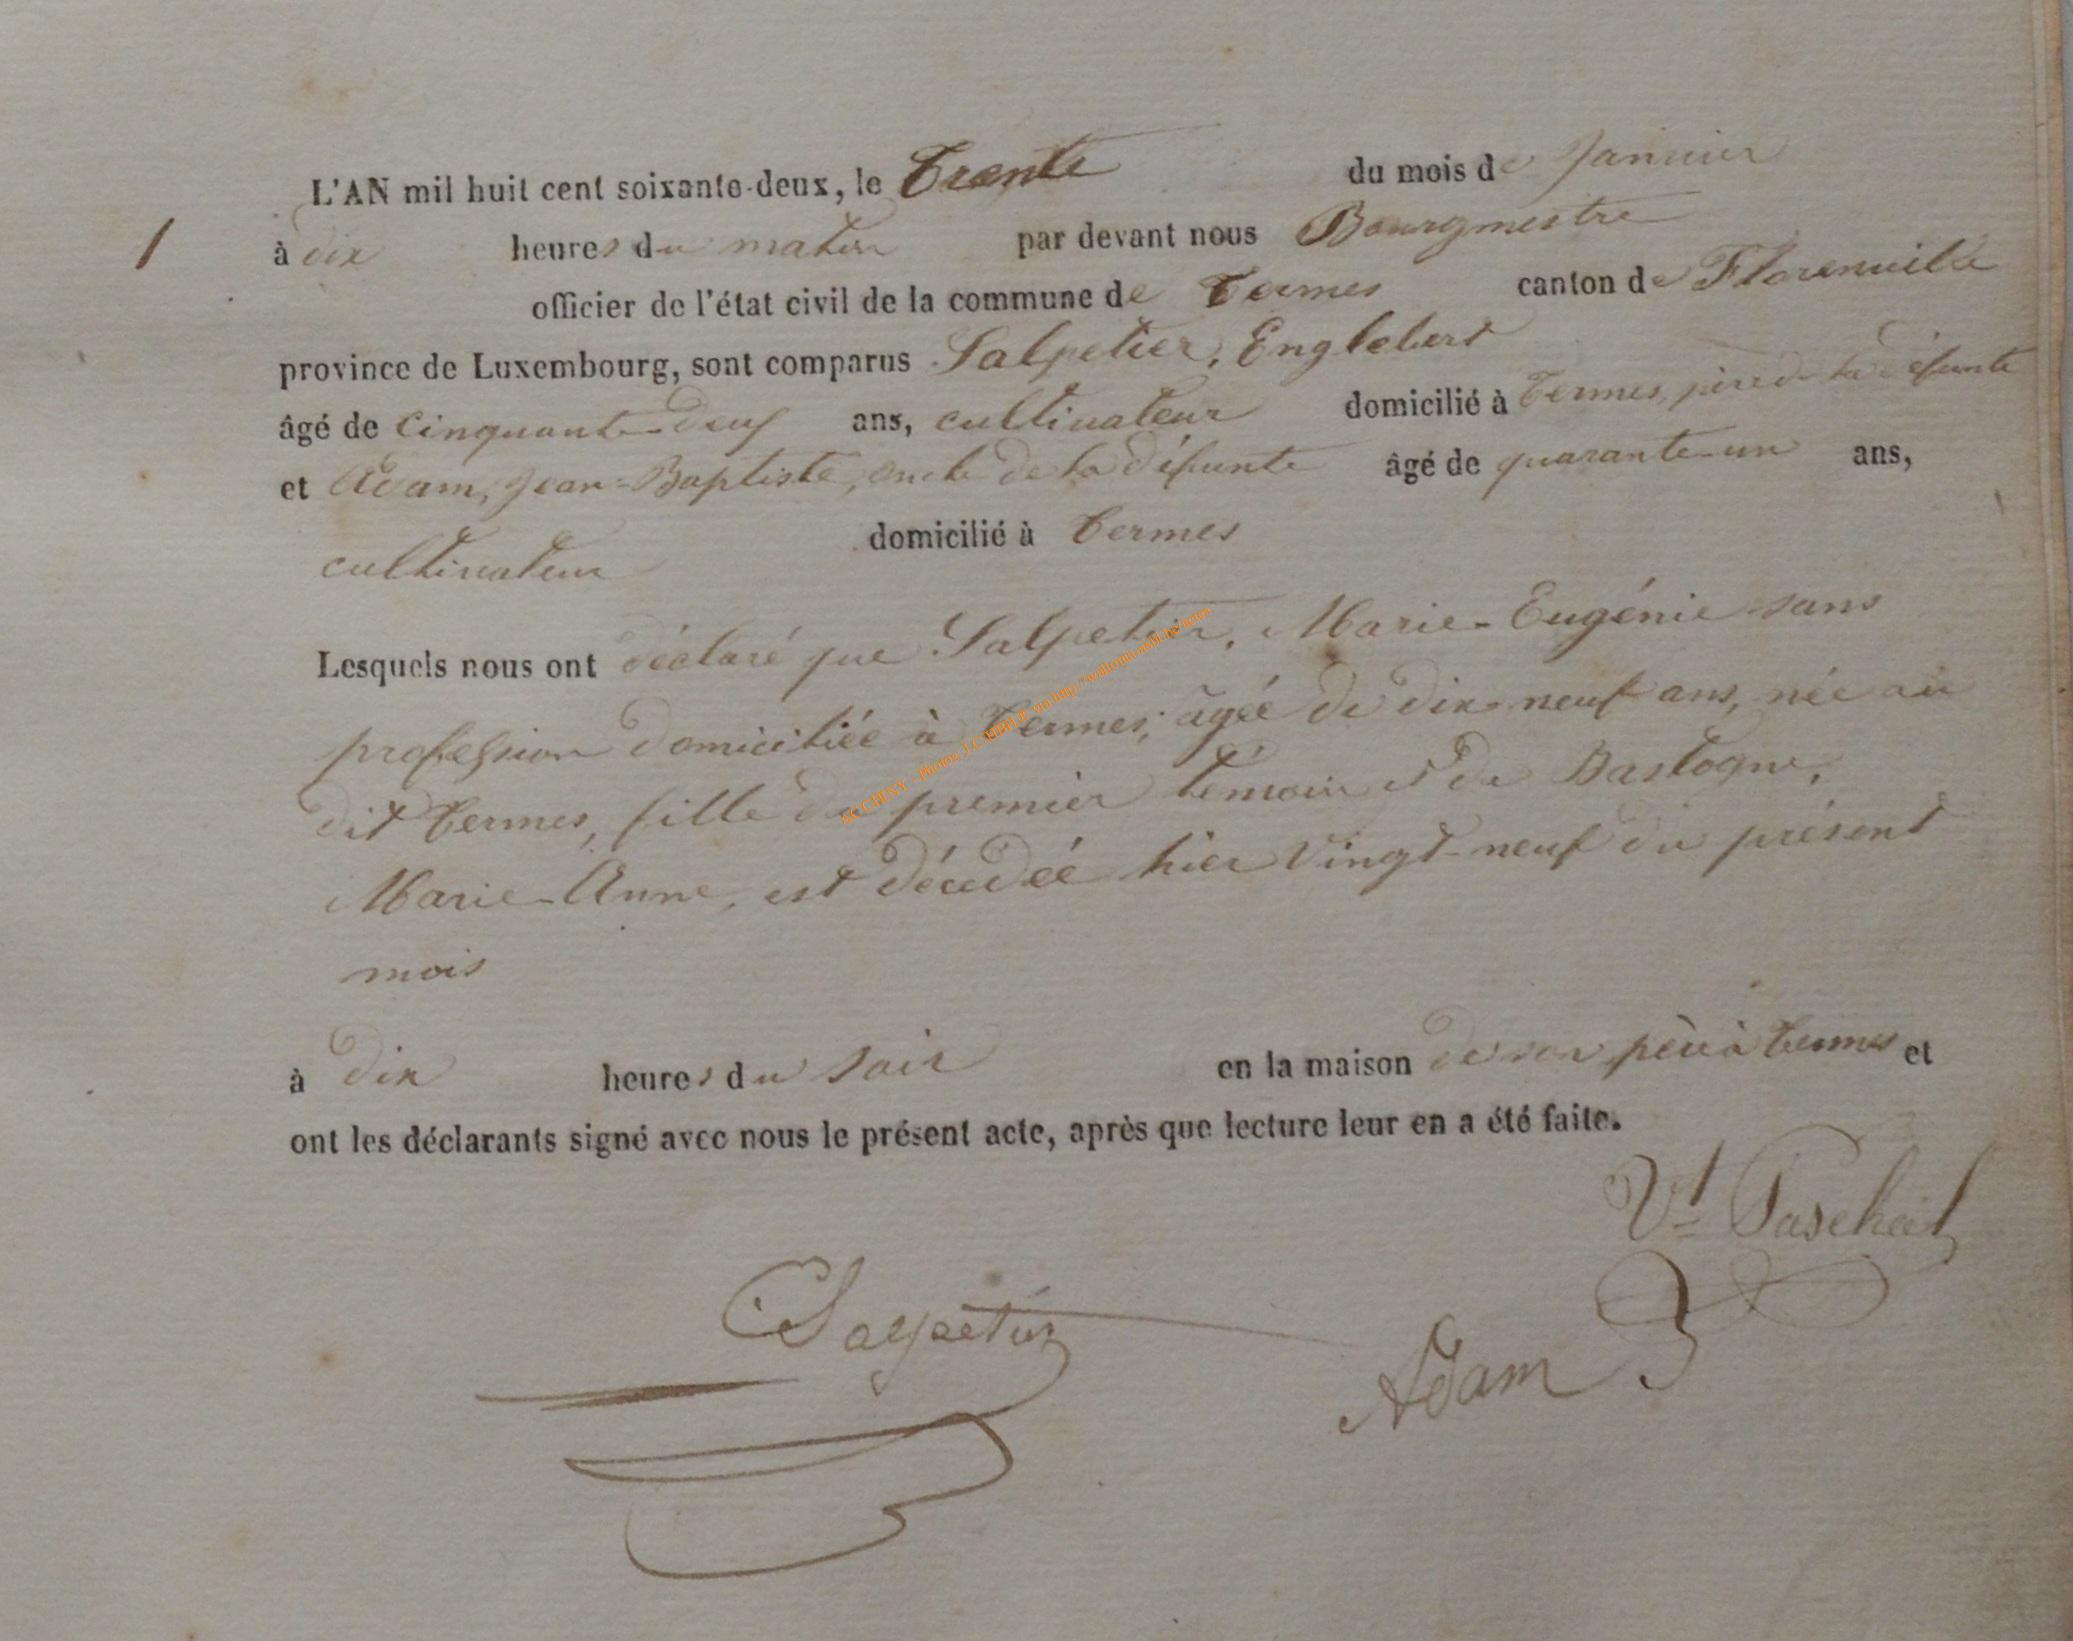 L'AN mil huit cent soixante-deux, le Trente du mois de Janvier
1 à dix heures du matin par devant nous Bourgmestre
officier de l'état civil de la commune de Termes canton de Florenville
province de Luxembourg, sont comparus Salpetier, Englebert
âgé de Cinquante-Deux ans, cultivateur domicilié à Termes, père de la défunte
et Adam, Jean-Baptiste, oncle de la défunte âgé de quarante-un ans,
cultivateur domicilié à Termes
Lesquels nous ont déclaré que Salpetier, Marie-Eugénie sans
profession domiciliée à Termes, âgée de dix neuf ans, née au
dit Termes, fille du premier témoin et de Bastogne,
Marie-Anne, est décédée hier Vingt-neuf du présent
mois
à Dix heures du soir en la maison de son père à Termes et
ont les déclarants signé avec nous le présent acte, après que lecture leur en a été faite.
Vt
Salpetier
Adam